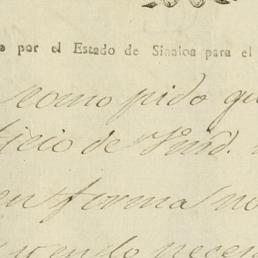 por el Estado de Sinaloa para el
como pido qu
ficio de Vmd.
en forma no